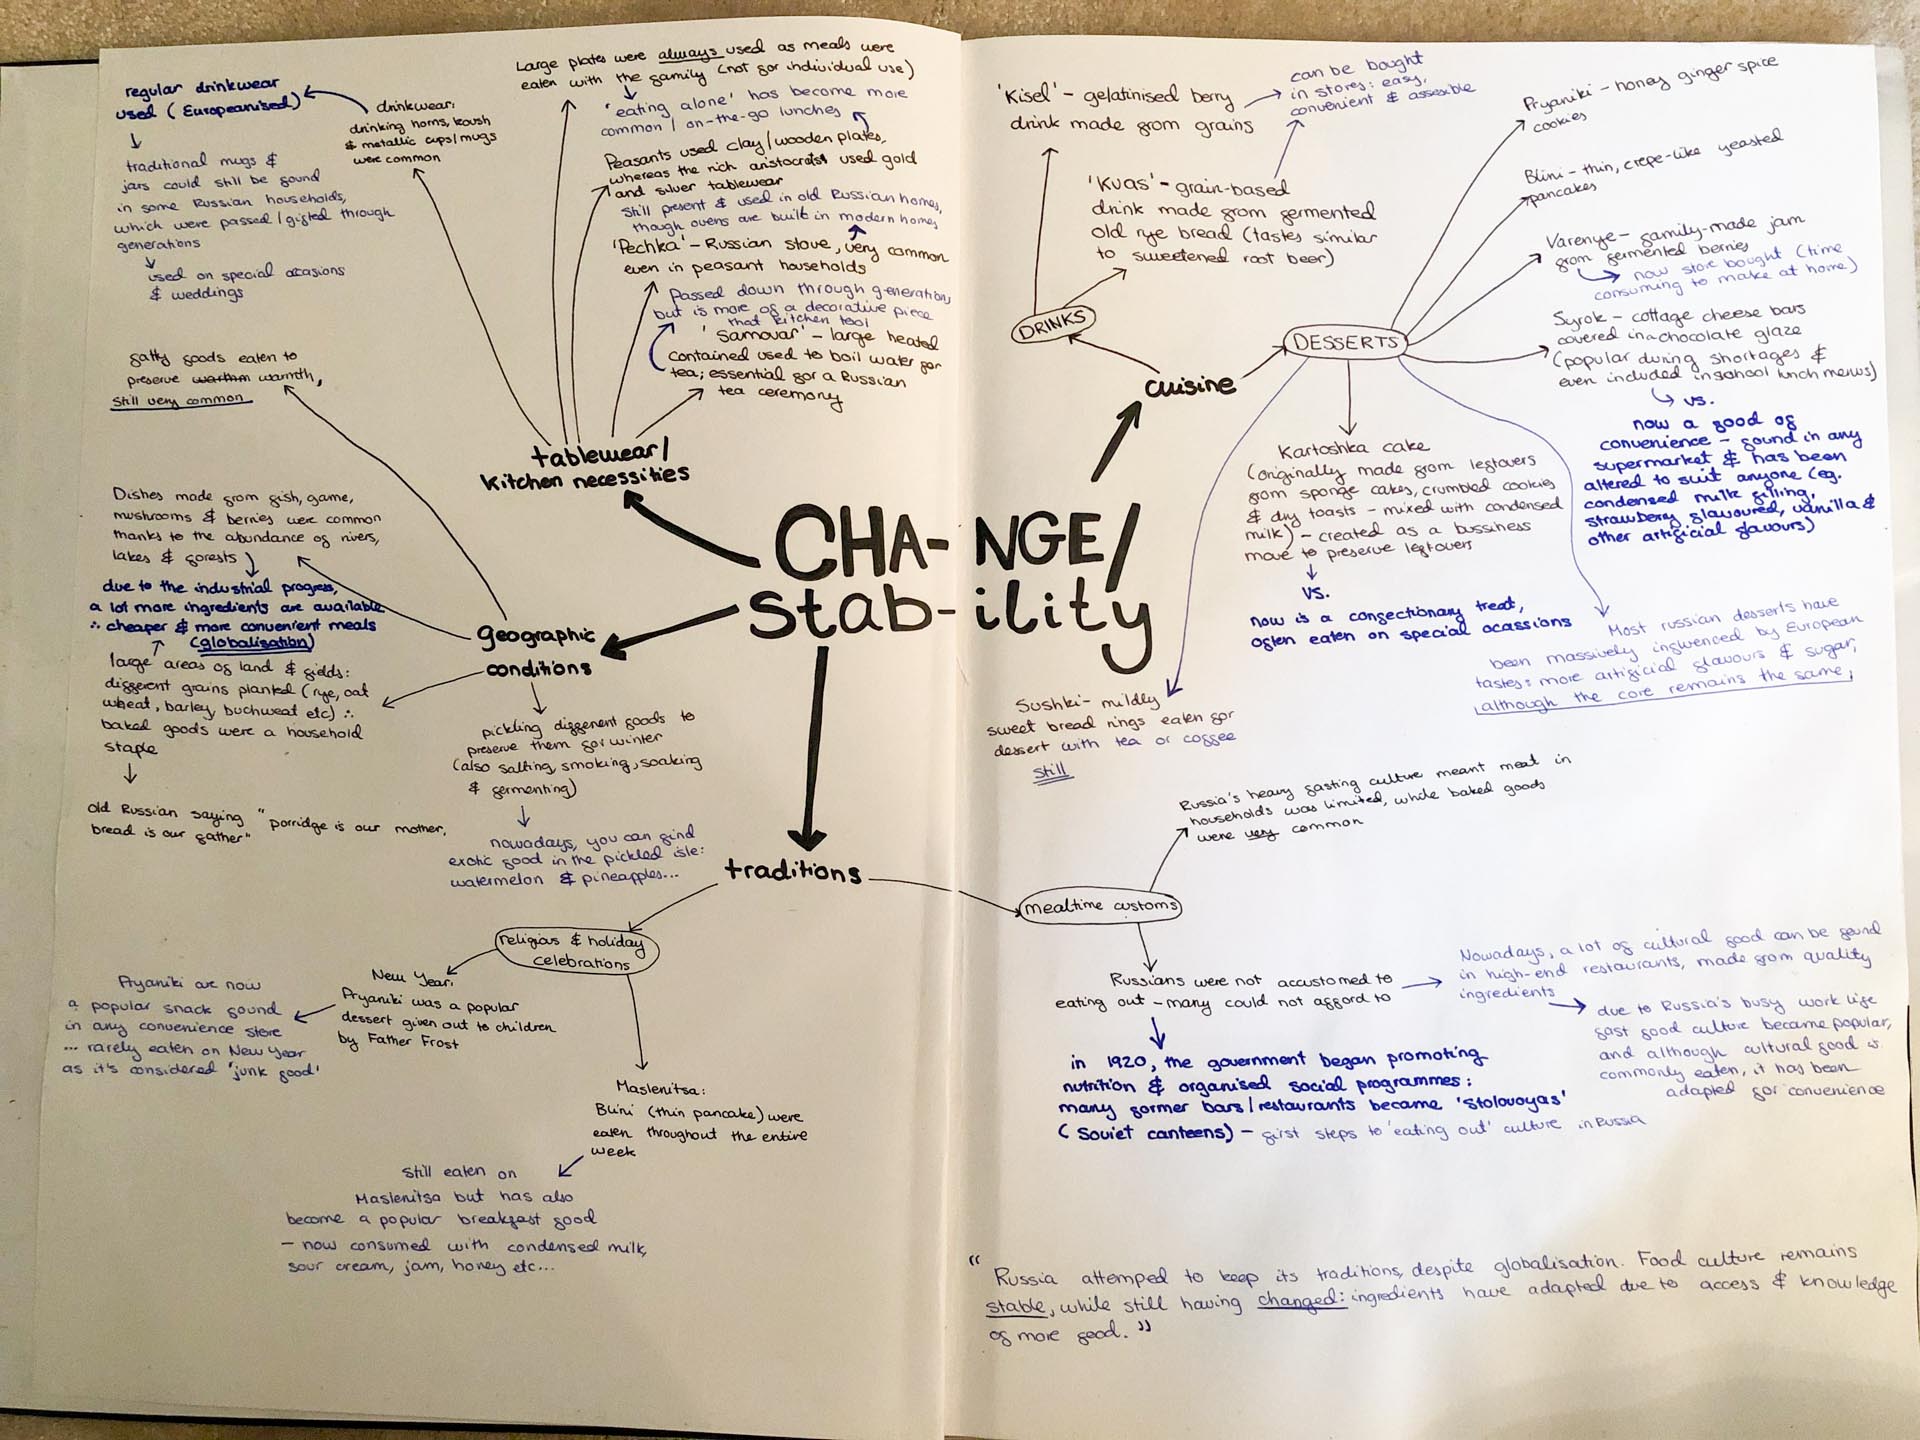 regular drinkwear
used (Europeanised)
drinkwear:
drinking horns, kovsh
& metallic cups/mugs
were common
traditional mugs &
jars could still be found
in some Russian households,
which were passed/gifted through
generations
used on special occasions
& weddings
Large plates were always used as meals were
eaten with the family (not for individual use)
'eating alone' has become more
common / on-the-go lunches
Peasants used clay/wooden plates,
whereas the rich aristocrats used gold
and silver tablewear
Still present & used in old Russian homes,
though ovens are built in modern homes
'Pechka' - Russian stove, very common
even in peasant households
Passed down through generations
but is more of a decorative piece
that kitchen tool
'Samovar' - large heated
contained used to boil water for
tea; essential for a Russian
tea ceremony
tablewear/
kitchen necessities
fatty foods eaten to
preserve warthm warmth,
still very common
Dishes made from fish, game,
mushrooms & berries were common
thanks to the abundance of rivers,
lakes & forests
due to the industrial progress,
a lot more ingredients are available
∴ cheaper & more convenient meals
(globalisation)
large areas of land & fields:
different grains planted (rye, oat
wheat, barley, buchweat etc) ∴
baked goods were a household
staple
old Russian saying "porridge is our mother,
bread is our father"
geographic
conditions
pickling different foods to
preserve them for winter
(also salting, smoking, soaking
& fermenting)
nowadays, you can find
exotic food in the pickled isle:
watermelon & pineapples...
CHA-NGE/
stab-ility
traditions
religious & holiday
celebrations
New Year:
Pryaniki was a popular
dessert given out to children
by Father Frost
Pryaniki are now
a popular snack found
in any convenience store
... rarely eaten on New Year
as it's considered 'junk food'
Maslenitsa:
Blini (thin pancake) were
eaten throughout the entire
week
Still eaten on
Maslenitsa but has also
become a popular breakfast food
- now consumed with condensed milk,
sour cream, jam, honey etc...
'Kisel' - gelatinised berry
drink made from grains
can be bought
in stores: easy,
convenient & assesible
'Kvas' - grain-based
drink made from fermented
old rye bread (tastes similar
to sweetened root beer)
DRINKS
cuisine
DESSERTS
Pryaniki - honey ginger spice
cookies
Blini - thin, crepe-like yeasted
pancakes
Varenye - family-made jam
from fermented berries
now store bought (time
consuming to make at home)
Syrok - cottage cheese bars
covered in a chocolate glaze
(popular during shortages &
even included in school lunch menus)
vs.
now a food of
convenience - found in any
supermarket & has been
altered to suit anyone (eg.
condensed milk filling,
strawberry flavoured, vanilla &
other artificial flavours)
Kartoshka cake
(originally made from leftovers
from sponge cakes, crumbled cookies
& dry toasts - mixed with condensed
milk) - created as a bussiness
move to preserve leftovers
vs.
now is a confectionary treat,
often eaten on special ocassions
Most russian desserts have
been massively influenced by European
tastes: more artificial flavours & sugar,
although the core remains the same;
Sushki - mildly
sweet bread rings eaten for
dessert with tea or coffee
still
Russia's heavy fasting culture meant meat in
households was limited, while baked goods
were very common
mealtime customs
Russians were not accustomed to
eating out - many could not afford to
Nowadays, a lot of cultural food can be found
in high-end restaurants, made from quality
ingredients
due to Russia's busy work life
fast food culture became popular,
and although cultural food is
commonly eaten, it has been
adapted for convenience
in 1920, the government began promoting
nutrition & organised social programmes:
many former bars/restaurants became 'stolovoyas'
(Soviet canteens) - first steps to 'eating out' culture in Russia
"Russia attemped to keep its traditions, despite globalisation. Food culture remains
stable, while still having changed: ingredients have adapted due to access & knowledge
of more food."